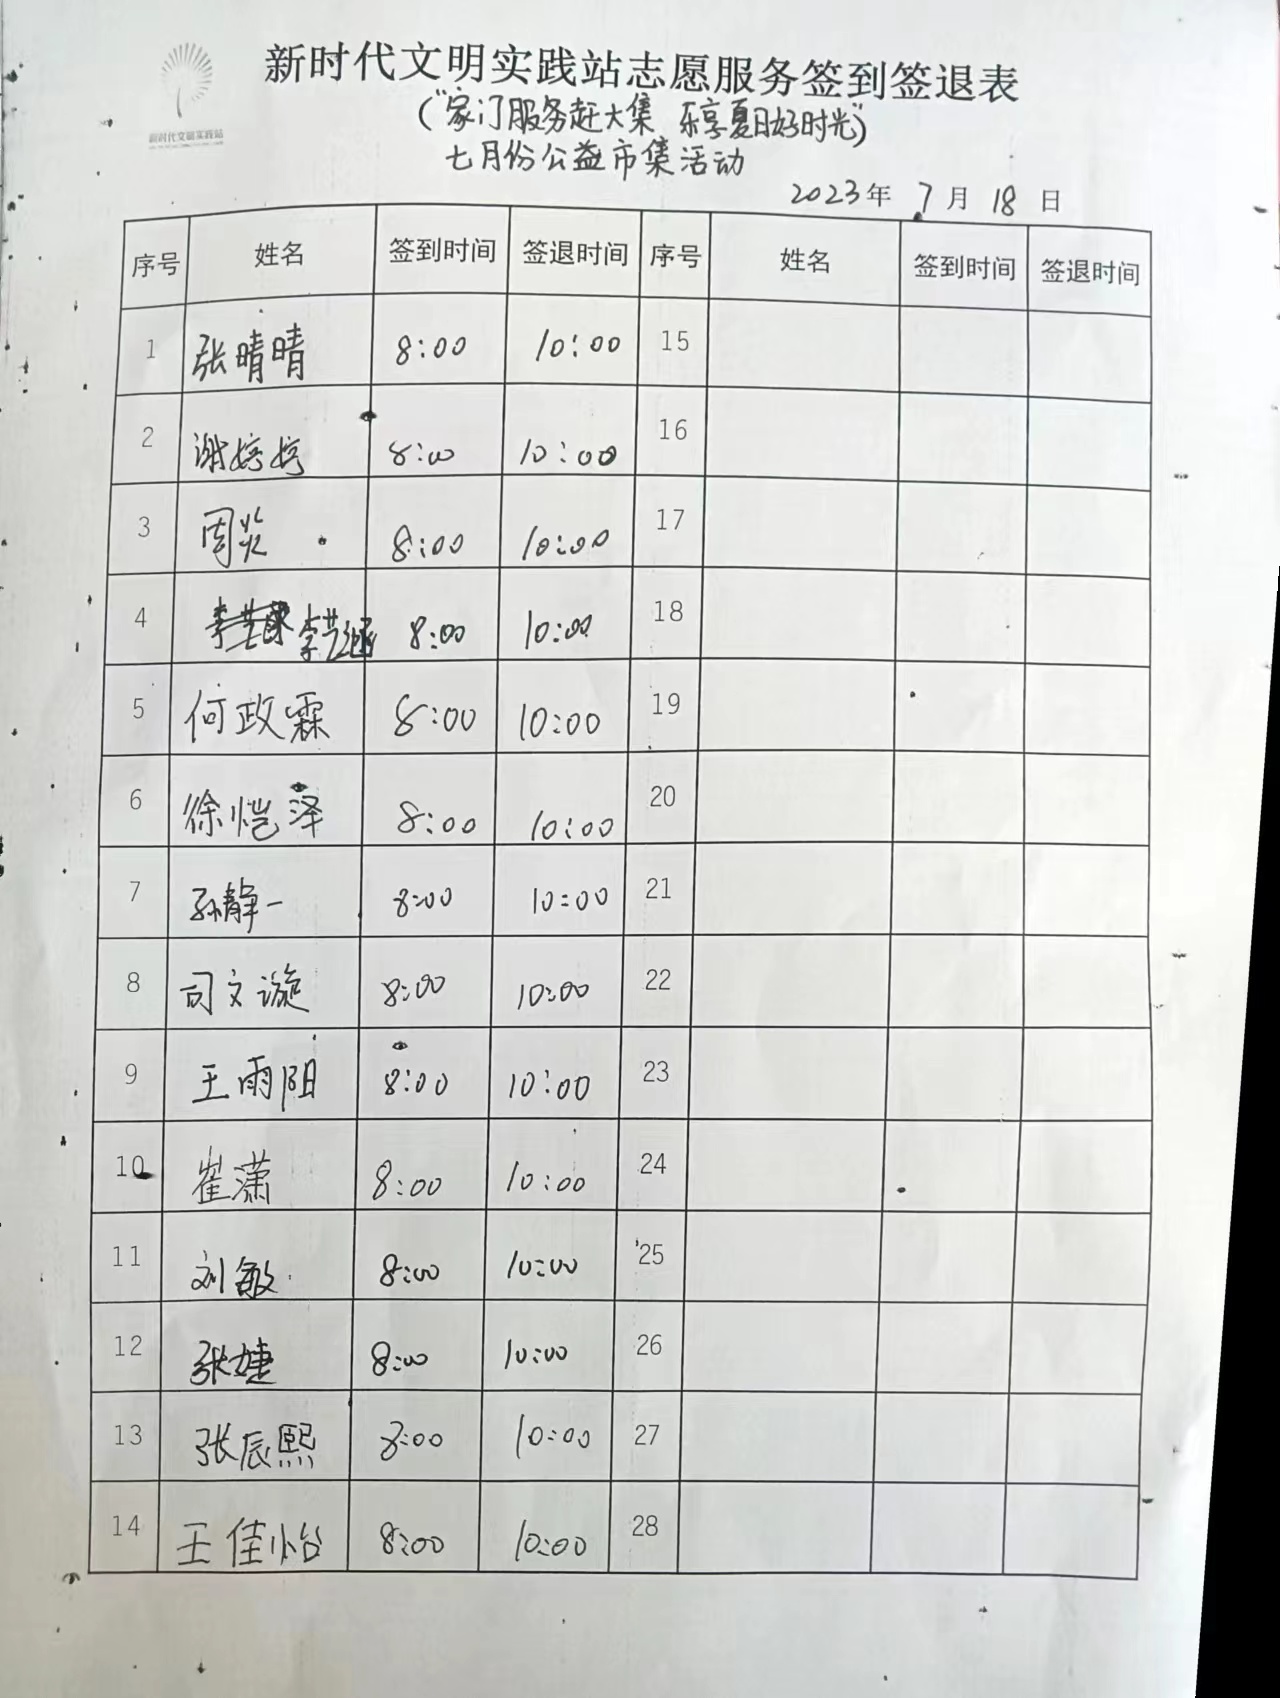 新时代文明实践站志愿服务签到签退表
新时代文明实践站
("家门服务赶大集 乐享夏日好时光")
七月份公益市集活动
2023年 7月 18日
序号 姓名 签到时间 签退时间 序号 姓名 签到时间 签退时间
1 张晴晴 8:00 10:00 15
2 谢婷婷 8:00 10:00 16
3 周炎 8:00 10:00 17
4 李艺涵 8:00 10:00 18
5 何政霖 8:00 10:00 19
6 徐恺泽 8:00 10:00 20
7 孙静一 8:00 10:00 21
8 司文漩 8:00 10:00 22
9 王雨阳 8:00 10:00 23
10 崔潇 8:00 10:00 24
11 刘敏 8:00 10:00 25
12 张婕 8:00 10:00 26
13 张辰熙 8:00 10:00 27
14 王佳怡 8:00 10:00 28